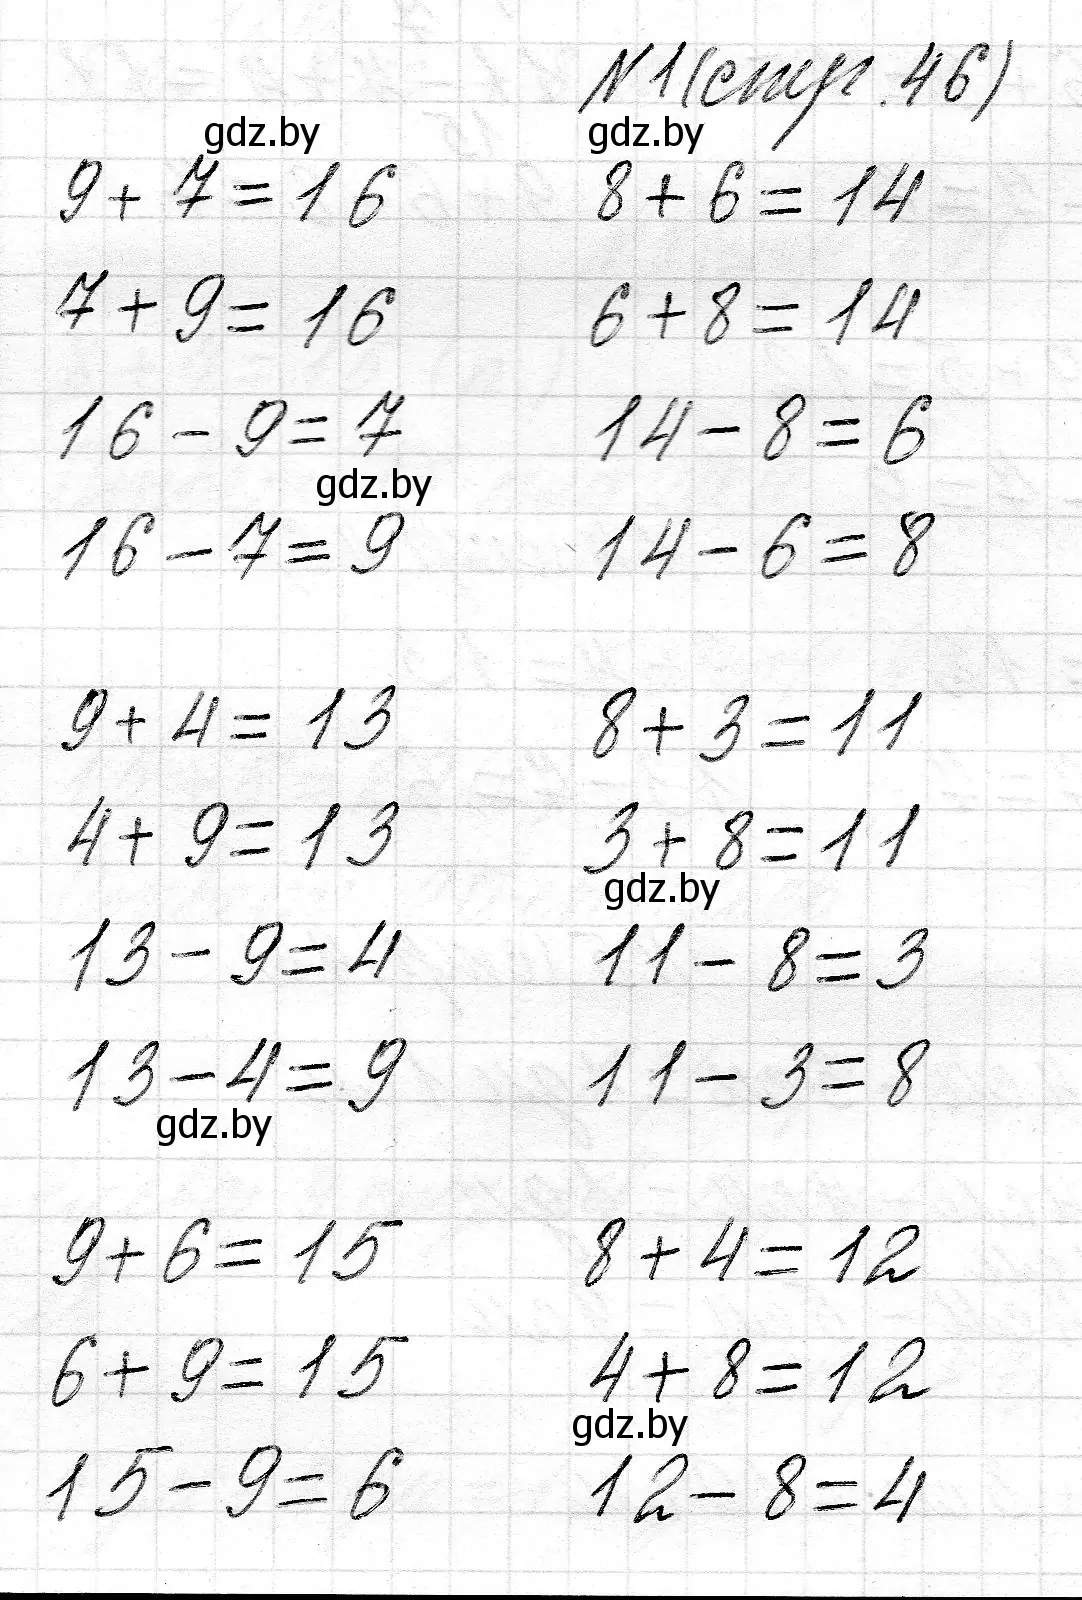 №1 (стр. 46)
gdz.by gdz.by
9 + 7 = 16 8 + 6 = 14
7 + 9 = 16 6 + 8 = 14
16 - 9 = 7 14 - 8 = 6
gdz.by
16 - 7 = 9 14 - 6 = 8
9 + 4 = 13 8 + 3 = 11
4 + 9 = 13 3 + 8 = 11
gdz.by
13 - 9 = 4 11 - 8 = 3
13 - 4 = 9 11 - 3 = 8
gdz.by
9 + 6 = 15 8 + 4 = 12
6 + 9 = 15 4 + 8 = 12
gdz.by
15 - 9 = 6 12 - 8 = 4